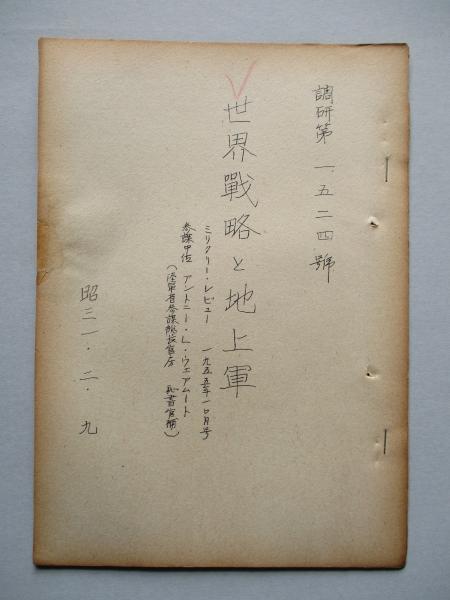 調研第一、五二四號
世界戰略と地上軍
ミリタリー・レビュー 一九五五年一〇月号
参謀中佐 アントニー・L・ウエアムート
(陸軍省参謀総長官房 秘書官補)
昭三一・二・九